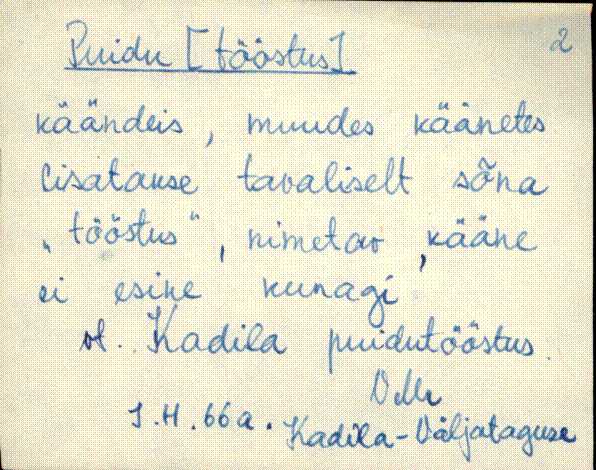 Puidu [tööstus] 2
käändeis, muudes käänetes
lisatakse tavaliselt sõna
„tööstus", nimetav kääne
ei esine kunagi
vt. Kadila puidutööstus.
VMr
J.H. 66a. Kadila-Väljataguse